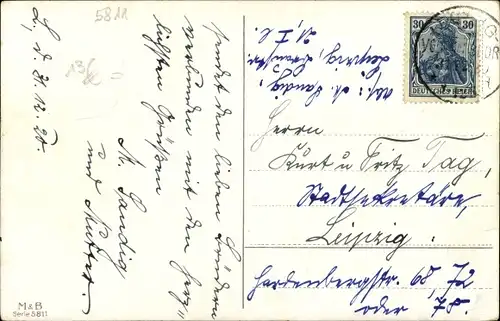 5811
L., d. 31.12.20.
sendet den lieben Brüdern
verbunden mit den herz-
lichsten Grüßen
M. Sandig
und Mutter.
Abs.: M. Sandig,
Leipzig,
21, I r.
30 30
DEUTSCHES REICH
Herren
Kurt u Fritz Tag,
Stadtsekretäre,
Leipzig.
Hardenbergstr. 68, 72
oder 78.
M & B
Serie 5811